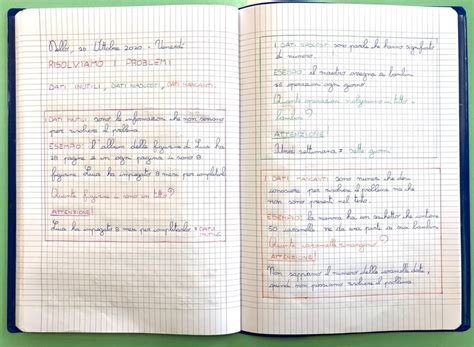 Dello, 25 Ottobre 2020 - Venerdì
RISOLVIAMO I PROBLEMI
DATI INUTILI, DATI NASCOSTI, DATI MANCANTI.
I DATI INUTILI sono le informazioni che non servono
per risolvere il problema.
ESEMPIO: l'album delle figurine di Luca ha
28 pagine e in ogni pagina ci sono 8
figurine. Luca ha impiegato 8 mesi per completarlo.
Quante figurine ci sono in tutto?
ATTENZIONE!
Luca ha impiegato 8 mesi per completarlo = DATO
INUTILE
I DATI NASCOSTI sono parole che hanno significato
di numero.
ESEMPIO: il maestro assegna ai bambini
operazioni ogni giorno.
Quante operazioni in tutto i
bambini?
ATTENZIONE
settimana = sette giorni
I DATI MANCANTI sono numeri che devi
conoscere per risolvere il problema ma che
non sono presenti nel testo.
ESEMPIO: la mamma ha un sacchetto che contiene
50 caramelle ne dà una parte ai suoi bambini.
Quante caramelle rimangono?
ATTENZIONE!
Non sappiamo il numero delle caramelle date,
quindi non possiamo risolvere il problema.